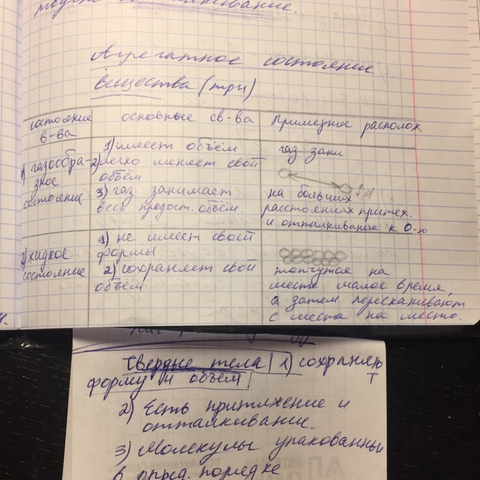 Агрегатное состояние
вещества (три)
состояние в-ва
основные св-ва
Примерное располож.
1) газообра-
зное
состояние
1) имеет объём
2) легко меняет свой
объём
3) газ занимает
весь предост. объём
газ зани
на больших
расстояниях притяж.
и отталкивание к 0-ю
2) жидкое
состояние
1) не имеет своей
формы
2) сохраняет свой
объём
топчутся на
месте малое время,
а затем перескакивают
с места на место.
Твердые тела 1) сохранять
форму и объём
2) Есть притяжение и
отталкивание.
3) Молекулы упакованны
в опред. порядке